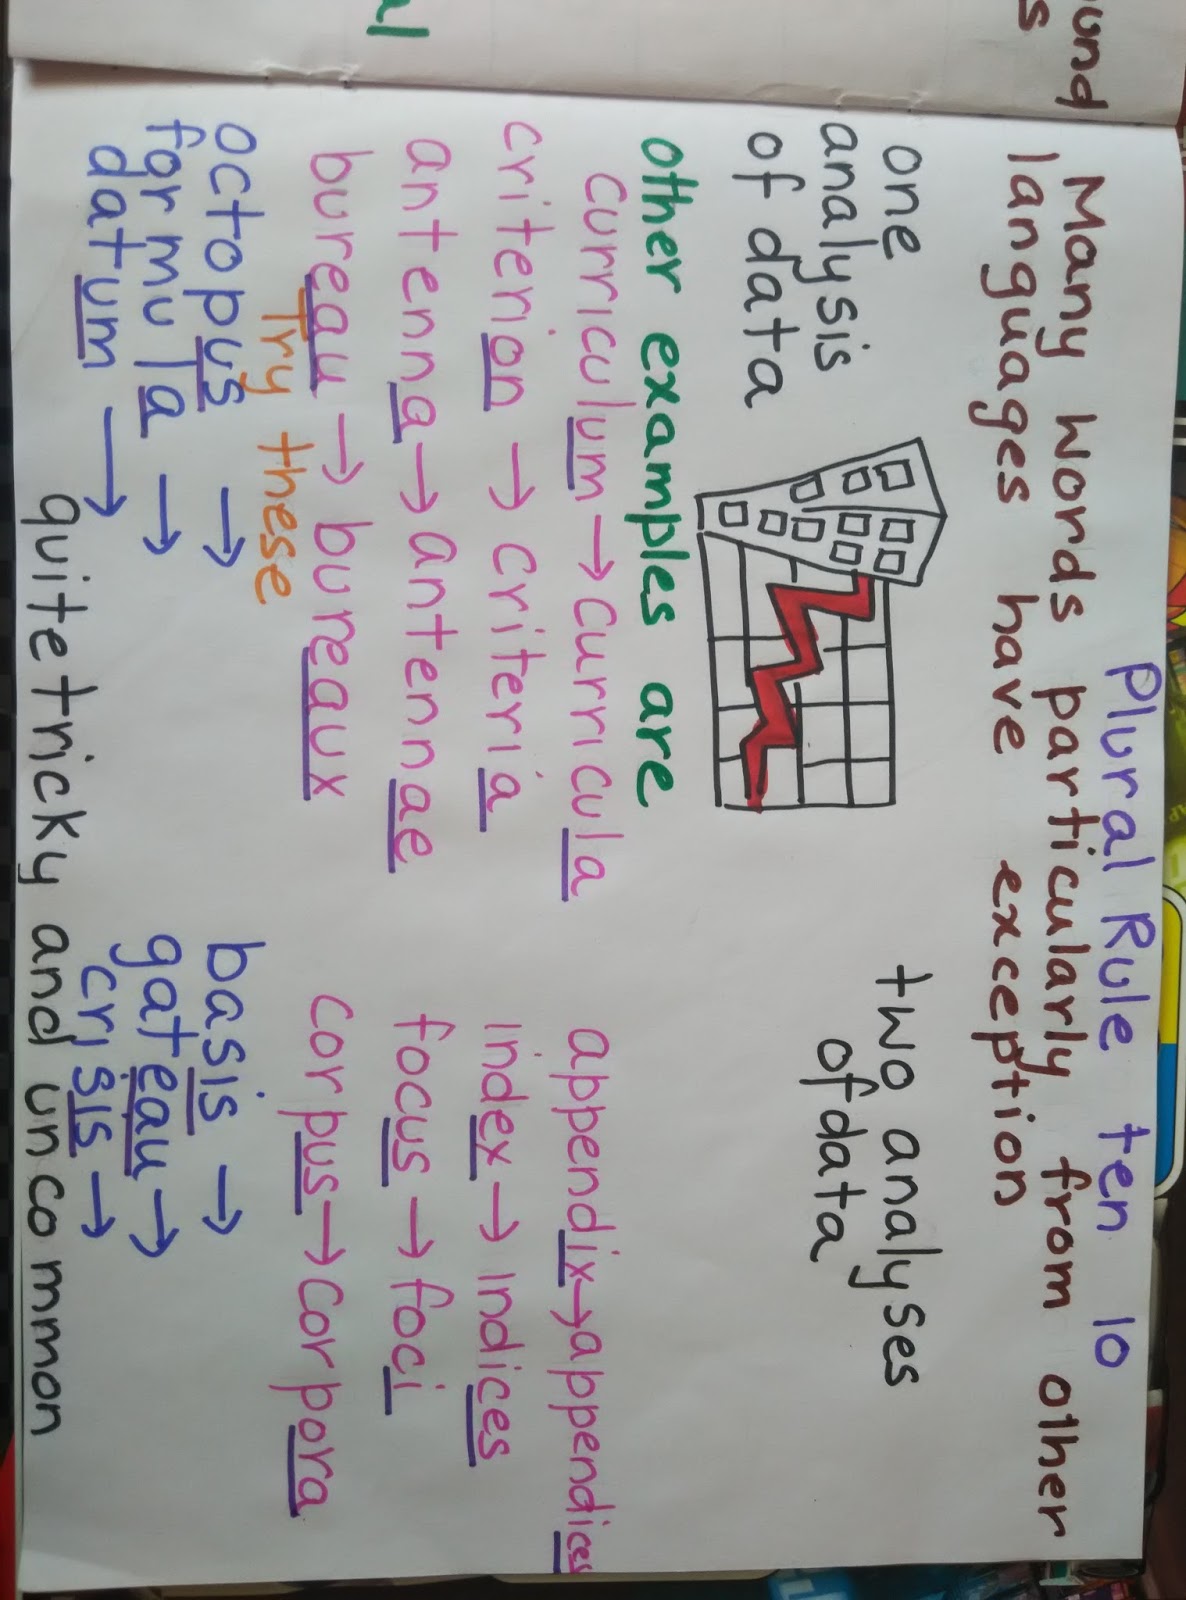 Plural Rule ten 10
Many words particularly from other
languages have exception
one
analysis
of data
two analyses
of data
other examples are
curriculum → curricula
appendix → appendices
criterion → criteria
index → indices
antenna → antennae
focus → foci
bureau → bureaux
corpus → corpora
Try these
octopus →
basis →
formula →
gateau →
datum →
crisis →
quite tricky and uncommon